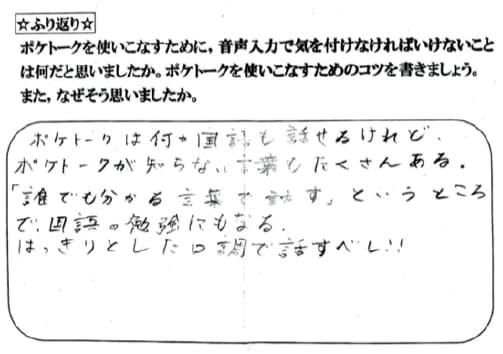 ☆ふり返り☆
ポケトークを使いこなすために，音声入力で気を付けなければいけないこと
は何だと思いましたか。ポケトークを使いこなすためのコツを書きましょう。
また，なぜそう思いましたか。
ポケトークは何か国語も話せるけれど、
ポケトークが知らない言葉もたくさんある。
「誰でも分かる言葉で話す」というところ
で、国語の勉強にもなる。
はっきりとした口調で話すべし!!